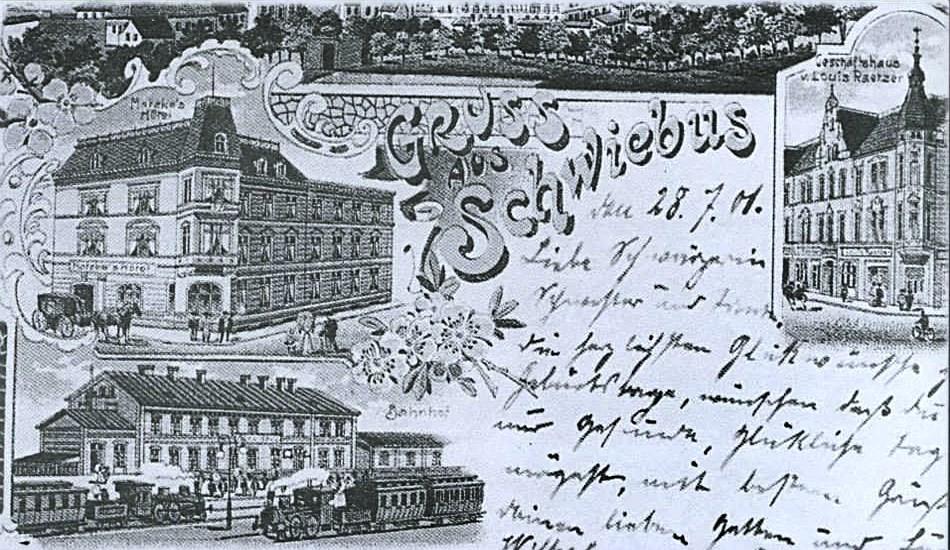 Mareke's
Hôtel
Mareke's Hôtel
Gruss
aus
Schwiebus
Geschäftshaus
v. Louis Raetzer
Bahnhof
den 28. 7. 01.
Liebe Schwägerin
Schwester und
die herzlichsten Glückwünsche
Geburtstage, wünschen daß du
nur Gesunde, glückliche Tag
mit besten
deinen lieben Gatten und